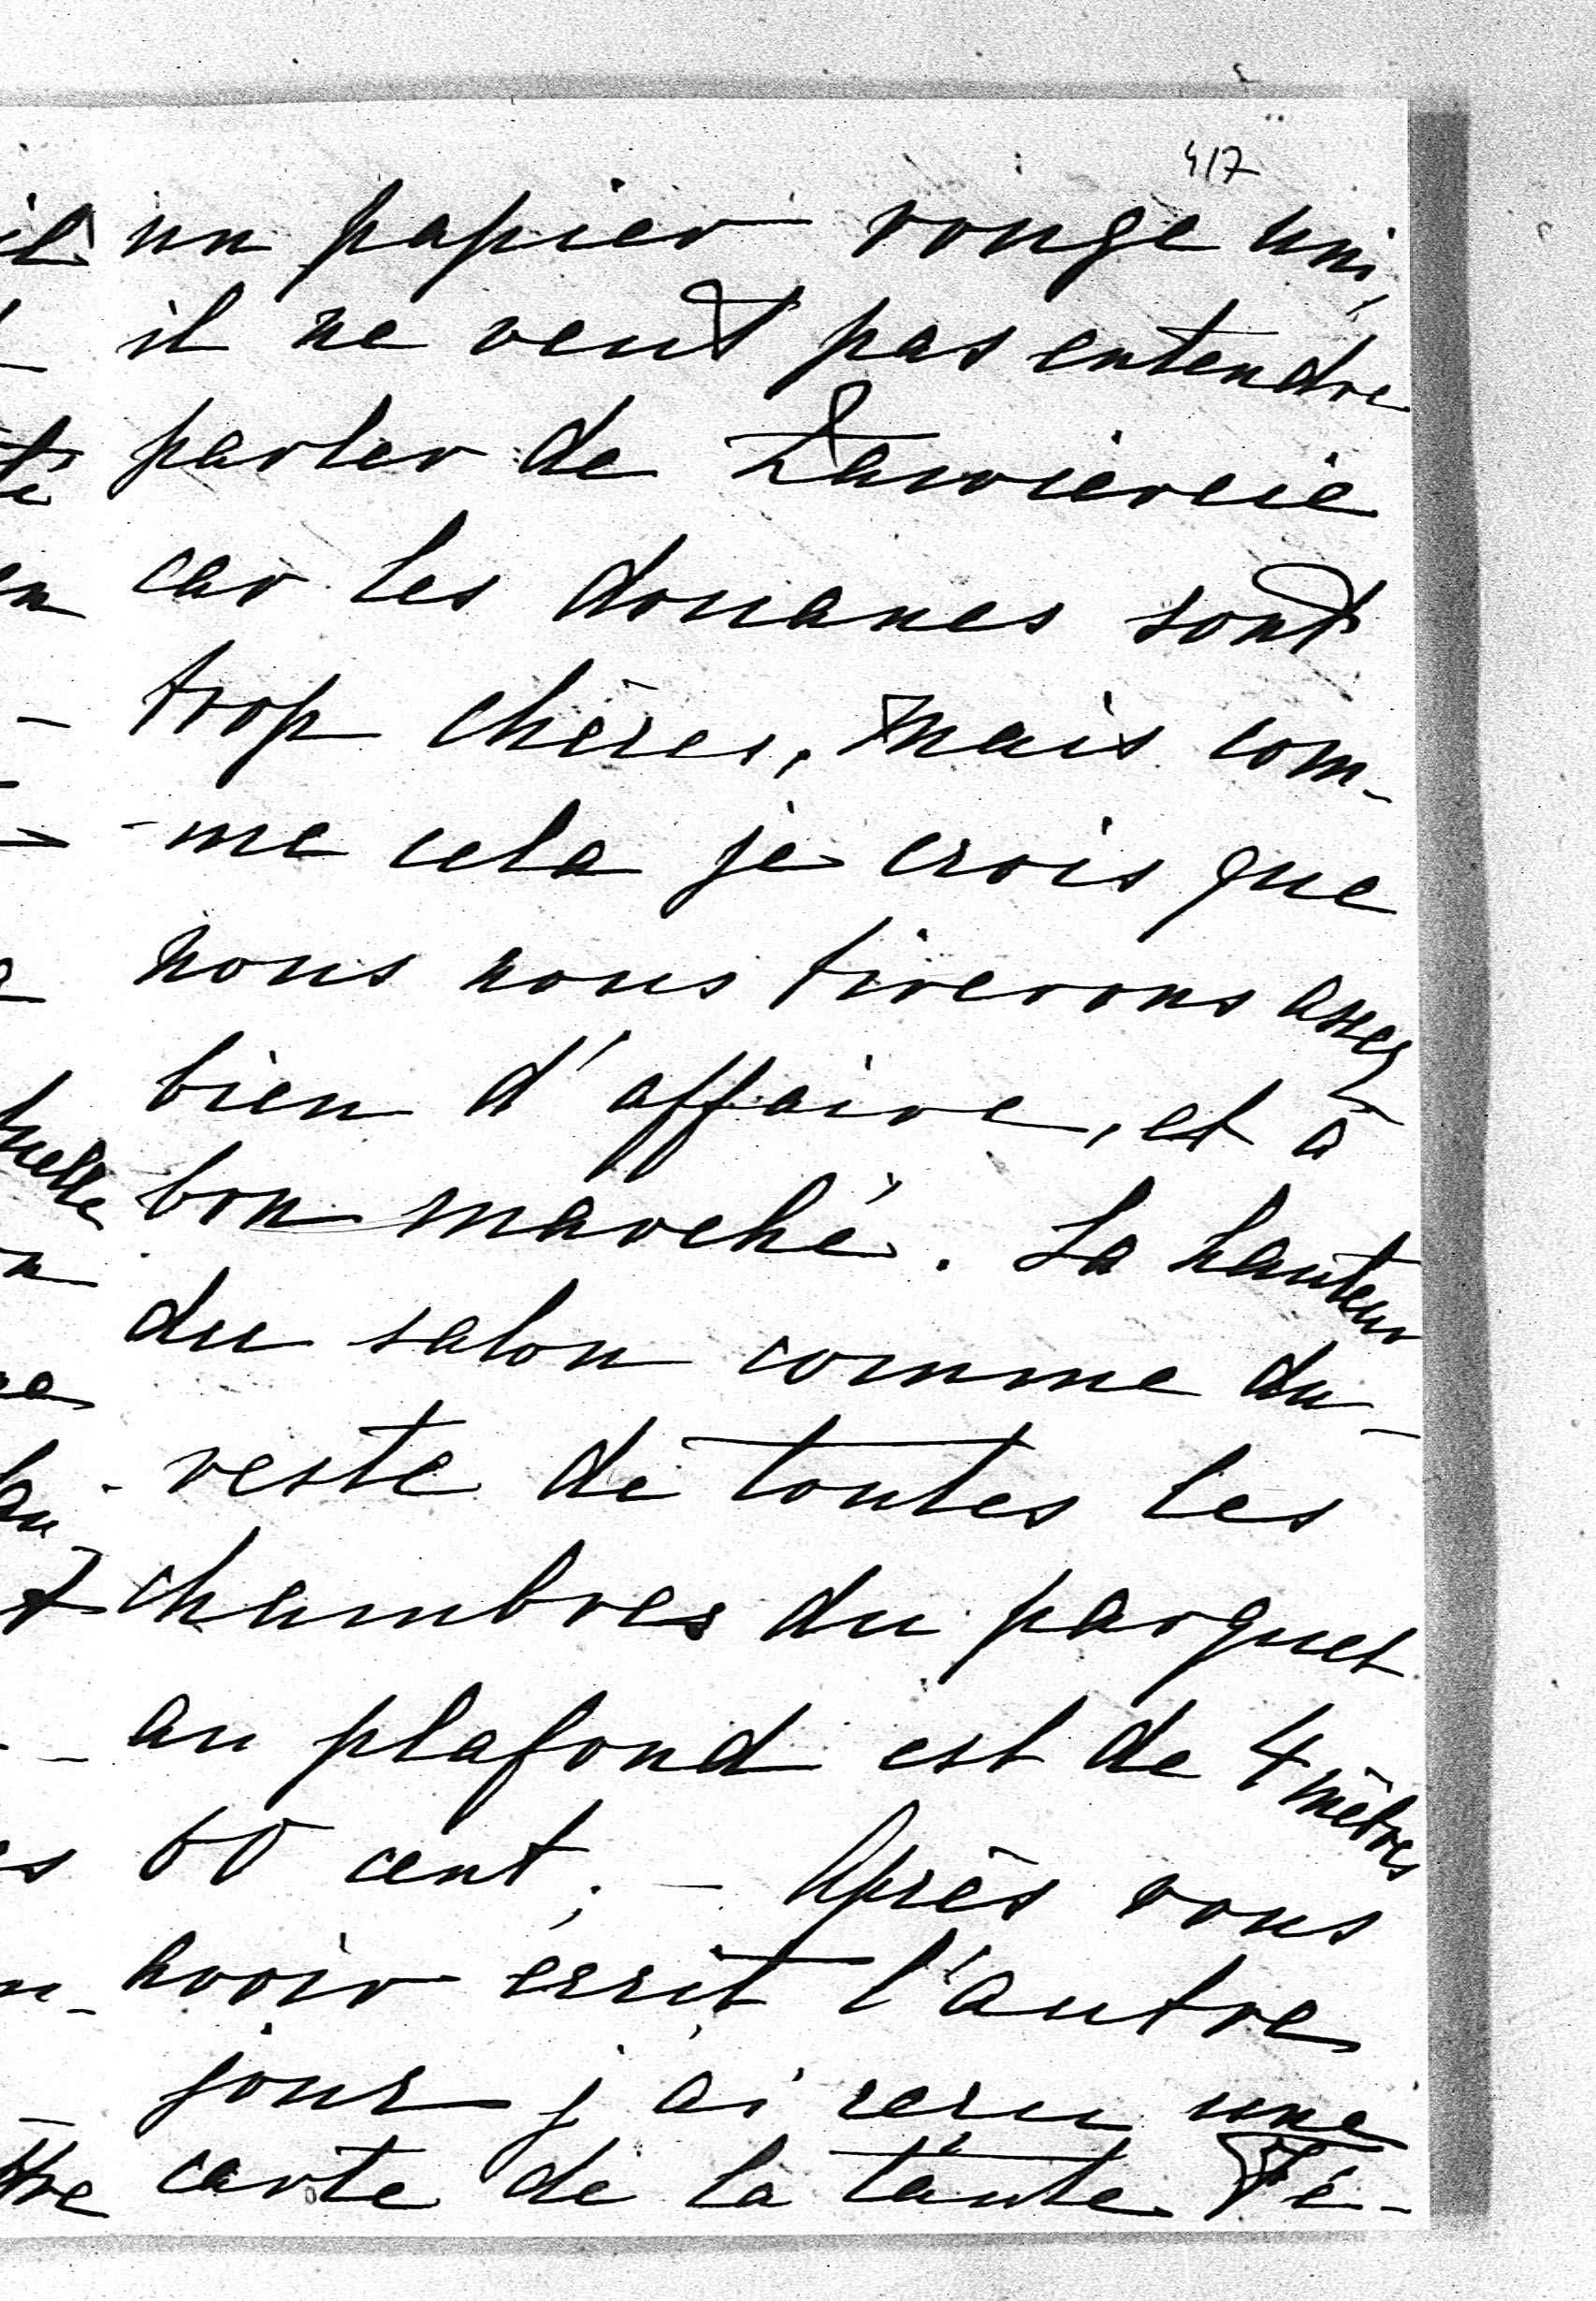 417
un papier rouge uni,
il ne veut pas entendre
parler de
car les douanes sont
trop chères, mais com-
-me cela je crois que
nous nous tirerons assez
bien d'affaire, et à
bon marché. La hauteur
du salon comme du-
-reste de toutes les
chambres du parquet
au plafond est de 4 mètres
60 cent; - Après vous
avoir écrit l'autre
jour j'ai reçu une
carte de la tante Fé-